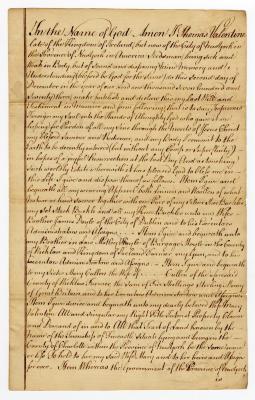 In the Name of God Amen I Thomas Valentine
late of the Kingdom of Ireland but now of the City of Newyork in
the Province of Newyork in America Seedsman being sick and
weak in Body but of Sound and disposing Mind Memory and
Understanding (blessed be God for the Same) do this Second day of
December in the year of our Lord one thousand Seven hundred and
Seventy three make publish and declare this my Last Will and
Testament in Manner and form following that is to say
Sovereign my Soul into the Hands of Almighty God who gave it me
hoping for Pardon of all my sins through the Merits of Jesus Christ
my Blessed Saviour and Redeemer and my Body I commit to the
Earth to be decently interred (but without any Pomp or Parade)
in hopes of a joyful Resurrection at the last Day And as touching
such worldly Estate wherewith it has pleased God to bless me in
this Life I give and dispose thereof as follows Item I give and
bequeath all my wearing Apparel both linnen and Woollen of what
nature or kind soever together with one Pair of my Silver Shoe Buckles
my Set Stock Buckle and all my Knee Buckles unto my
Brother James Doyle of the City of Dublin and to his
Administrators and Assigns Item I give and bequeath unto
my Brother in Law Matthew Doyle of in the County
of Wicklow and Kingdom of Ireland Farmer my Gun and to his
Administrators and Assigns Item I give and bequeath
to my Sister Mary Cullen the Wife of Cullen of the Said
County of Wicklow Farmer the Sum of Six Shillings Sterling Money
of Great Britain and to her
Item I give devise and bequeath unto my dearly beloved Wife Mary
Valentine All and Singular my Right Title Interest Property Claim
and Demand of in and to All that Tract of Land known by the
Name of the Township of lying and being in the
County of Charlotte within the Province of Newyork be the Same more
or less To hold to her my Said Wife Mary and to her heirs and Assigns
for ever Item Whereas the Government of the Province of Newyork